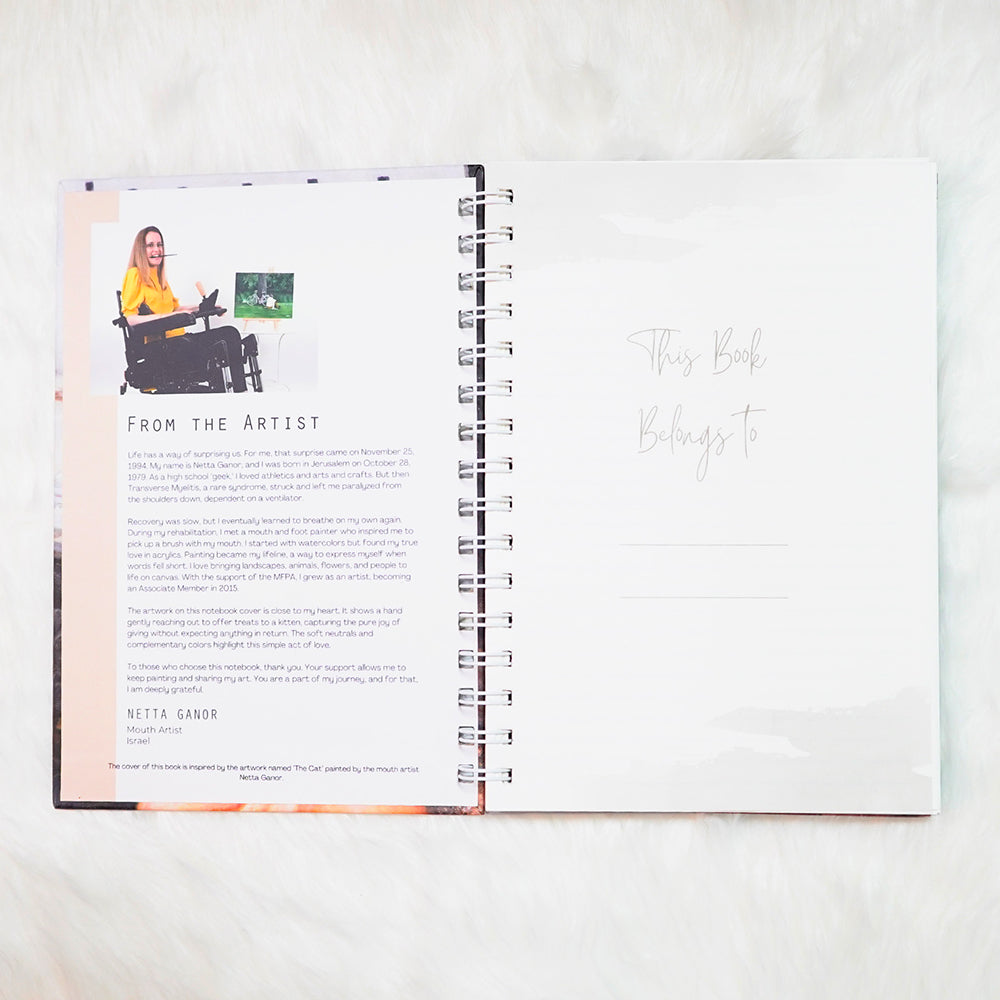 FROM THE ARTIST
Life has a way of surprising us. For me, that surprise came on November 25,
1994. My name is Netta Ganor, and I was born in Jerusalem on October 28,
1979. As a high school 'geek,' I loved athletics and arts and crafts. But then
Transverse Myelitis, a rare syndrome, struck and left me paralyzed from
the shoulders down, dependent on a ventilator.
Recovery was slow, but I eventually learned to breathe on my own again.
During my rehabilitation, I met a mouth and foot painter who inspired me to
pick up a brush with my mouth. I started with watercolors but found my true
love in acrylics. Painting became my lifeline, a way to express myself when
words fell short. I love bringing landscapes, animals, flowers, and people to
life on canvas. With the support of the MFPA, I grew as an artist, becoming
an Associate Member in 2015.
The artwork on this notebook cover is close to my heart. It shows a hand
gently reaching out to offer treats to a kitten, capturing the pure joy of
giving without expecting anything in return. The soft neutrals and
complementary colors highlight this simple act of love.
To those who choose this notebook, thank you. Your support allows me to
keep painting and sharing my art. You are a part of my journey, and for that,
I am deeply grateful.
NETTA GANOR
Mouth Artist
Israel
The cover of this book is inspired by the artwork named 'The Cat' painted by the mouth artist
Netta Ganor.
This Book
Belongs to